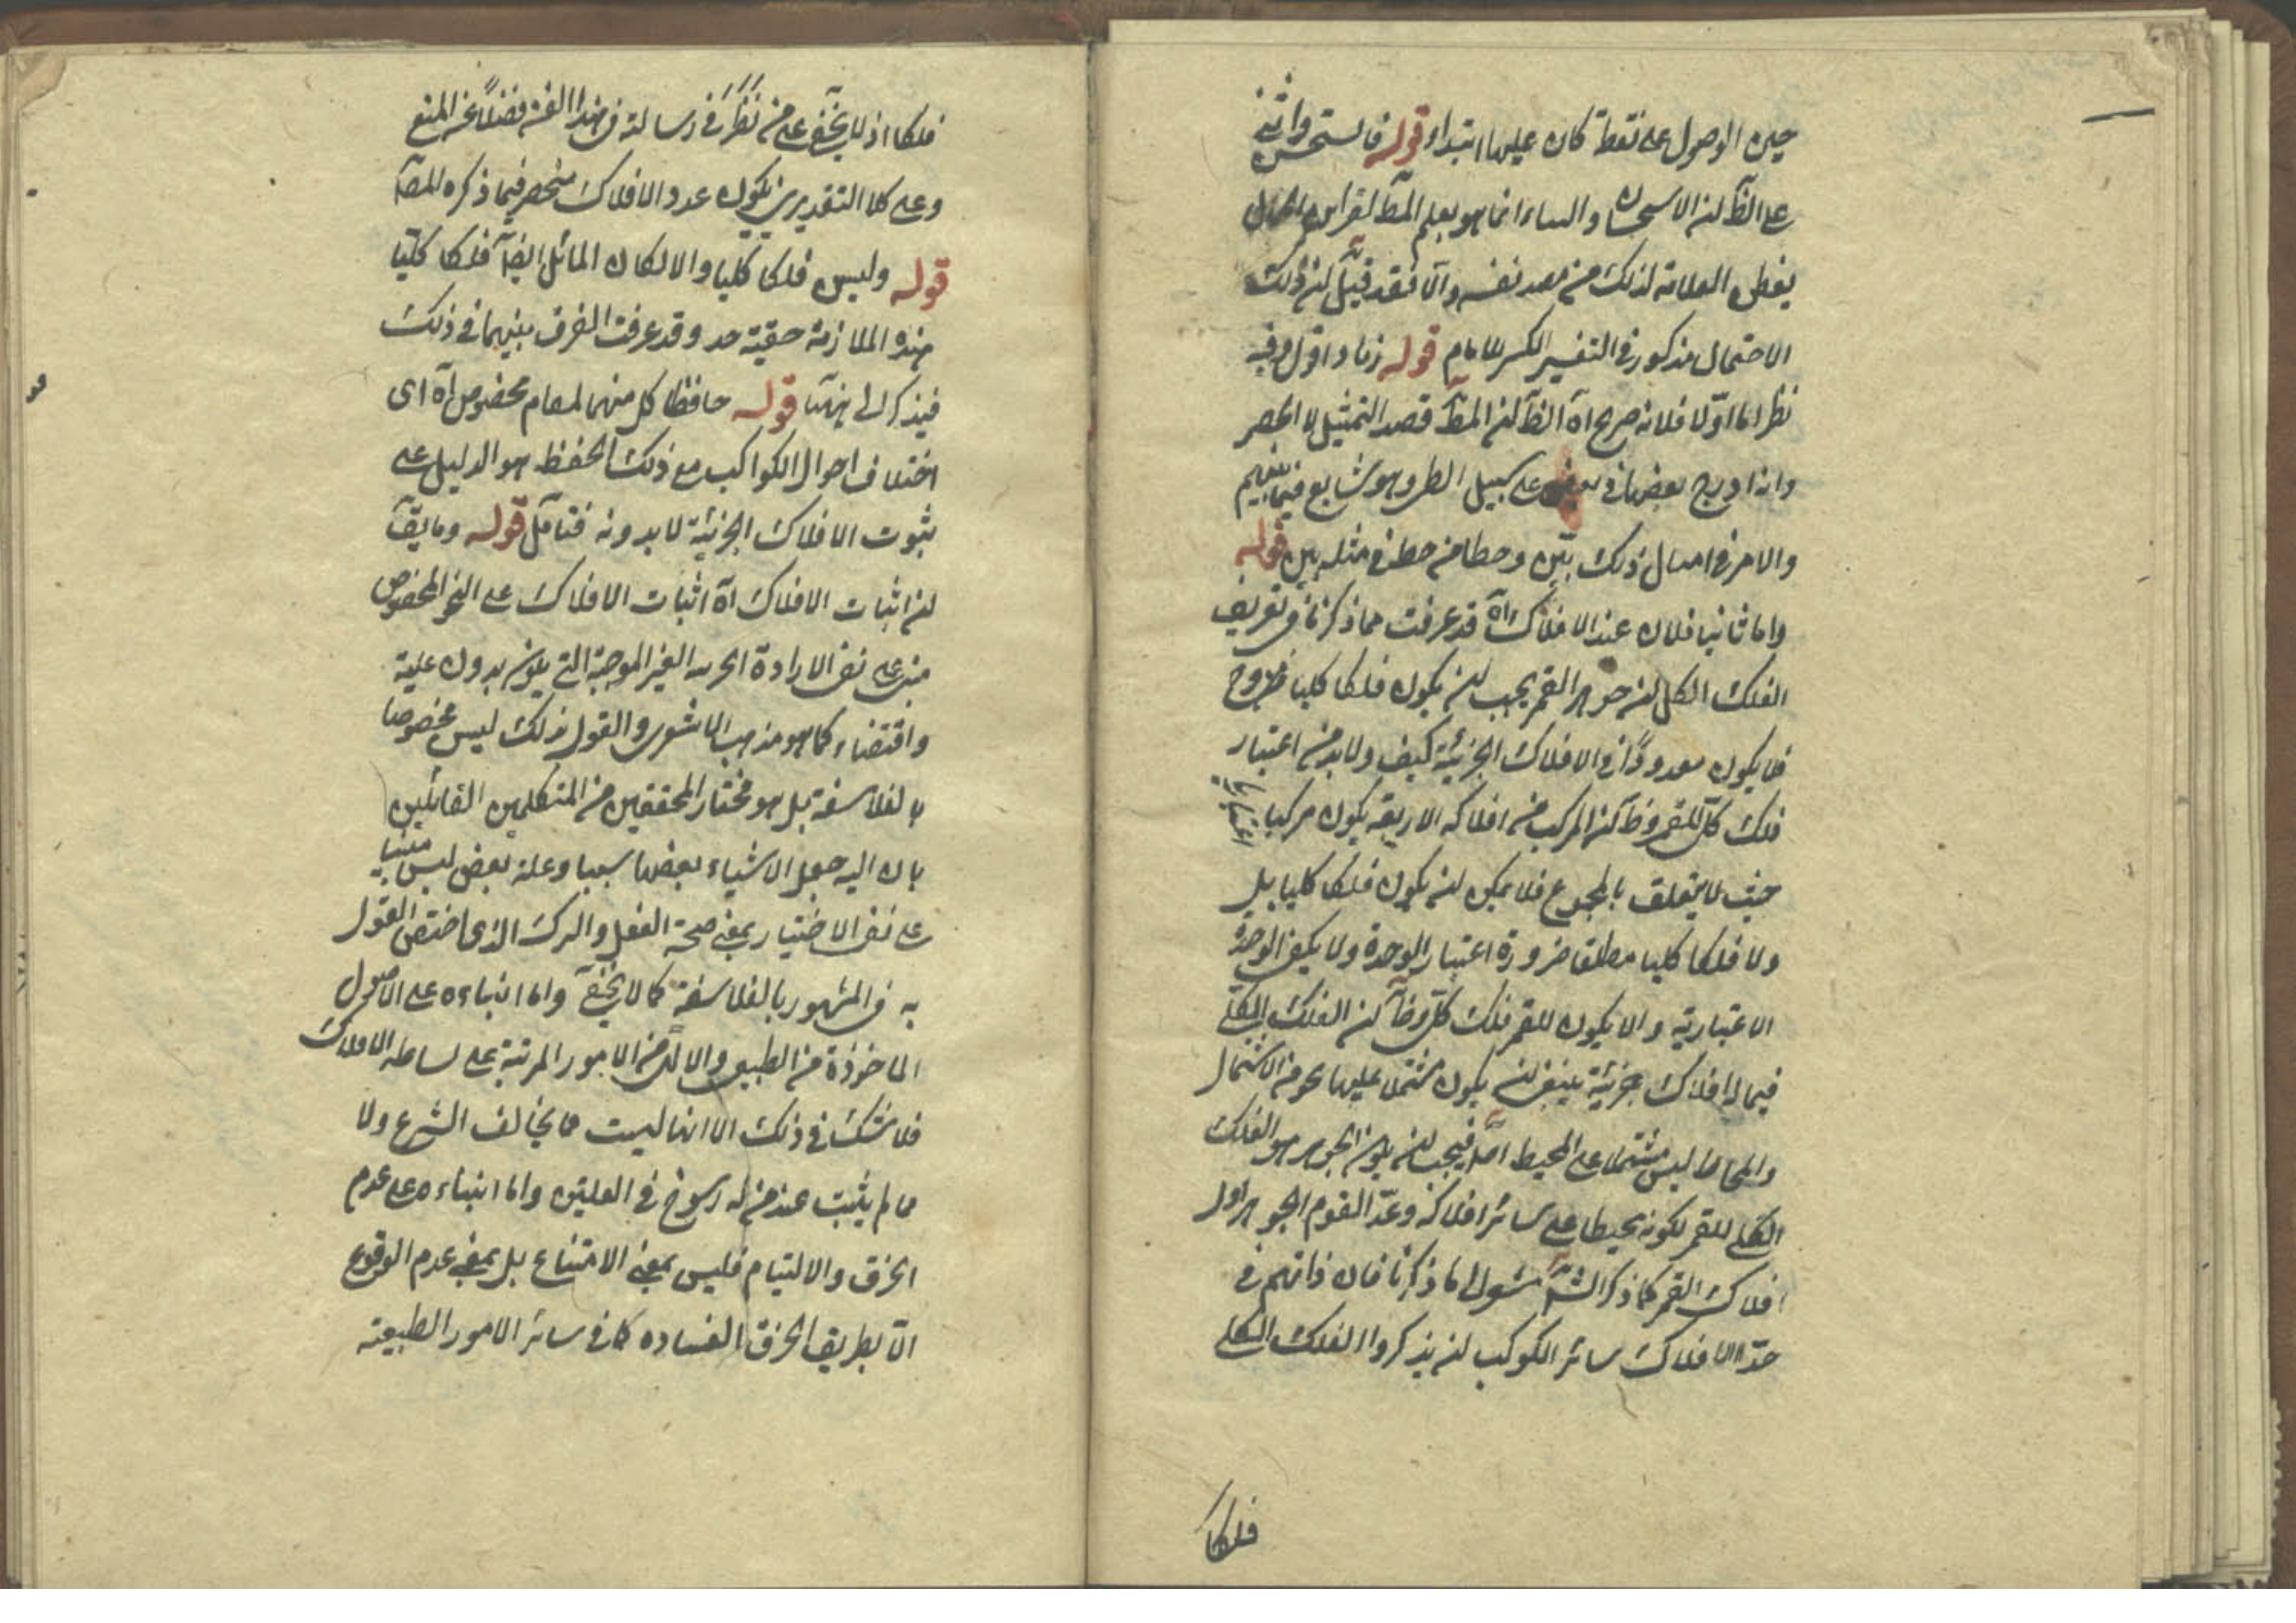 حين الوصول على نقطة كان عليها ابتداء قوله فاستحسن واثنى
على الظ لان الاستحسان والثناء انما هو بعلم المط لقراين
العلامة لذلك من نفسه والا فقد قيل ان ذلك
الاحتمال مذكور في التفسير الكبير للامام قوله اقول وفيه
نظر اما اولا فلانه صريح اه الظ ان المط قصد التمثيل لا الحصر
وانه ادرج بعضها في على سبيل وهو شايع فيما بينهم
والامر في امثال ذلك بين وخطا من خطا في مثله بين قوله
واما ثانيا فلان عند الافلاك اه قد عرفت مما ذكرنا في تعريف
الفلك الكلي ان جوزهر القمر يجب ان يكون فلكا كليا
فلا يكون معدودا في الافلاك الجزئية كيف ولا بد من اعتبار
فلك كلي للقمر وظ ان المركب من افلاكه الاربعة يكون مركبا
حيث لا يتعلق بالمجموع فلا يمكن ان يكون فلكا كليا بل
ولا فلكا كليا مطلقا ضرورة اعتبار الوحدة ولا يكفي الوحدة
الاعتبارية والا يكون للقمر فلك كلي وظ ان الفلك الكلي
فيما له افلاك جزئية ينبغي ان يكون مشتملا عليها نحو من الاشتمال
والمحاط ليس مشتملا على المحيط فيجب ان يكون الجوزهر هو الفلك
الكلي للقمر لكونه محيطا على سائر افلاكه وعد القوم الجوزهر اول
افلاك القمر كما ذكر الش ما ذكرنا فان في
عد الافلاك سائر الكوكب ان يذكروا الفلك الكلي
فلكا
فلكا اذ لا يخفى على من نظر في رسالة في هذا الفن فضلا عن المنع
وعلى كلا التقديرين يكون عدد الافلاك منحصر فيما ذكره المص
قوله وليس فلكا كليا والا لكان المائل ايضا فلكا كليا
هذه الملازمة وقد عرفت الفرق بينهما في ذلك
قوله حافظا كل منهما لمقام مخصوص اه اى
اختلاف احوال الكواكب مع ذلك الحفظ هو الدليل على
ثبوت الافلاك الجزئية لا بدونه فتامل قوله وما يق
ان اثبات الافلاك اه اثبات الافلاك على النحو المخصوص
مبنى على نفى الارادة الغير الموجبة التي يكون بدون علية
واقتضاء كما هو مذهب الاشعرى والقول بذلك ليس مخصوصا
بالفلاسفة بل هو مختار المحققين من المتكلمين القائلين
بان اليه جعل الاشياء بعضها سببا وعلة بعض ليس مبنيا
على نفى الاختيار بمعنى صحة الفعل والترك الذى اختص القول
به في المشهور بالفلاسفة كما لا يخفى واما ابتناءه على الاصول
الماخوذة من الطبيعى والالهى من الامور المرتبة على بساطة الافلاك
فلا شك في ذلك الا انها ليست مما يخالف الشرع ولا
مما لم يثبت عند من له رسوخ في العلمين واما ابتناءه على عدم
الخرق والالتيام فليس بمعنى الامتناع بل بمعنى عدم الوقوع
الا بطريق الخرق الفساده كما في سائر الامور الطبيعية